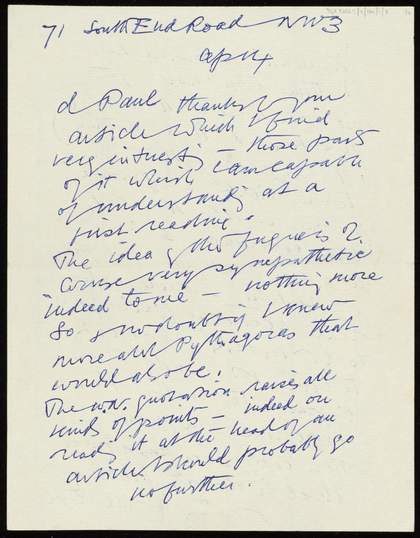 71 South End Road NW3
Ap 14
d Paul thanks for your
article which I find
very interesting – those parts
of it which I am capable
of understanding at a
first reading.
The idea of the fugue is of
course very sympathetic
indeed to me – nothing more
so & no doubt if I knew
more abt Pythagoras that
would also be.
The quotation raises all
kinds of points – indeed on
reading it at the head of an
article I should probably go
no further.